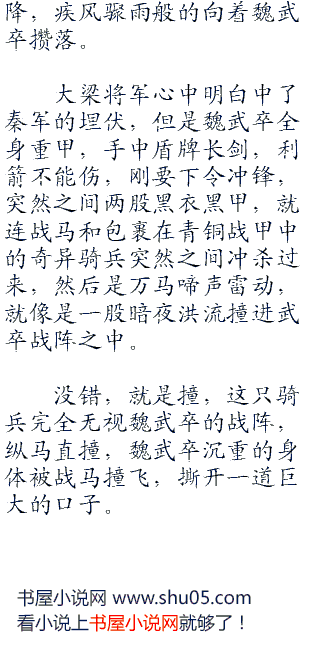 降，疾风骤雨般的向着魏武
卒攒落。
大梁将军心中明白中了
秦军的埋伏，但是魏武卒全
身重甲，手中盾牌长剑，利
箭不能伤，刚要下令冲锋，
突然之间两股黑衣黑甲，就
连战马和包裹在青铜战甲中
的奇异骑兵突然之间冲杀过
来，然后是万马啼声雷动，
就像是一股暗夜洪流撞进武
卒战阵之中。
没错，就是撞，这只骑
兵完全无视魏武卒的战阵，
纵马直撞，魏武卒沉重的身
体被战马撞飞，撕开一道巨
大的口子。
书屋小说网 www.shu05.com
看小说上书屋小说网就够了！